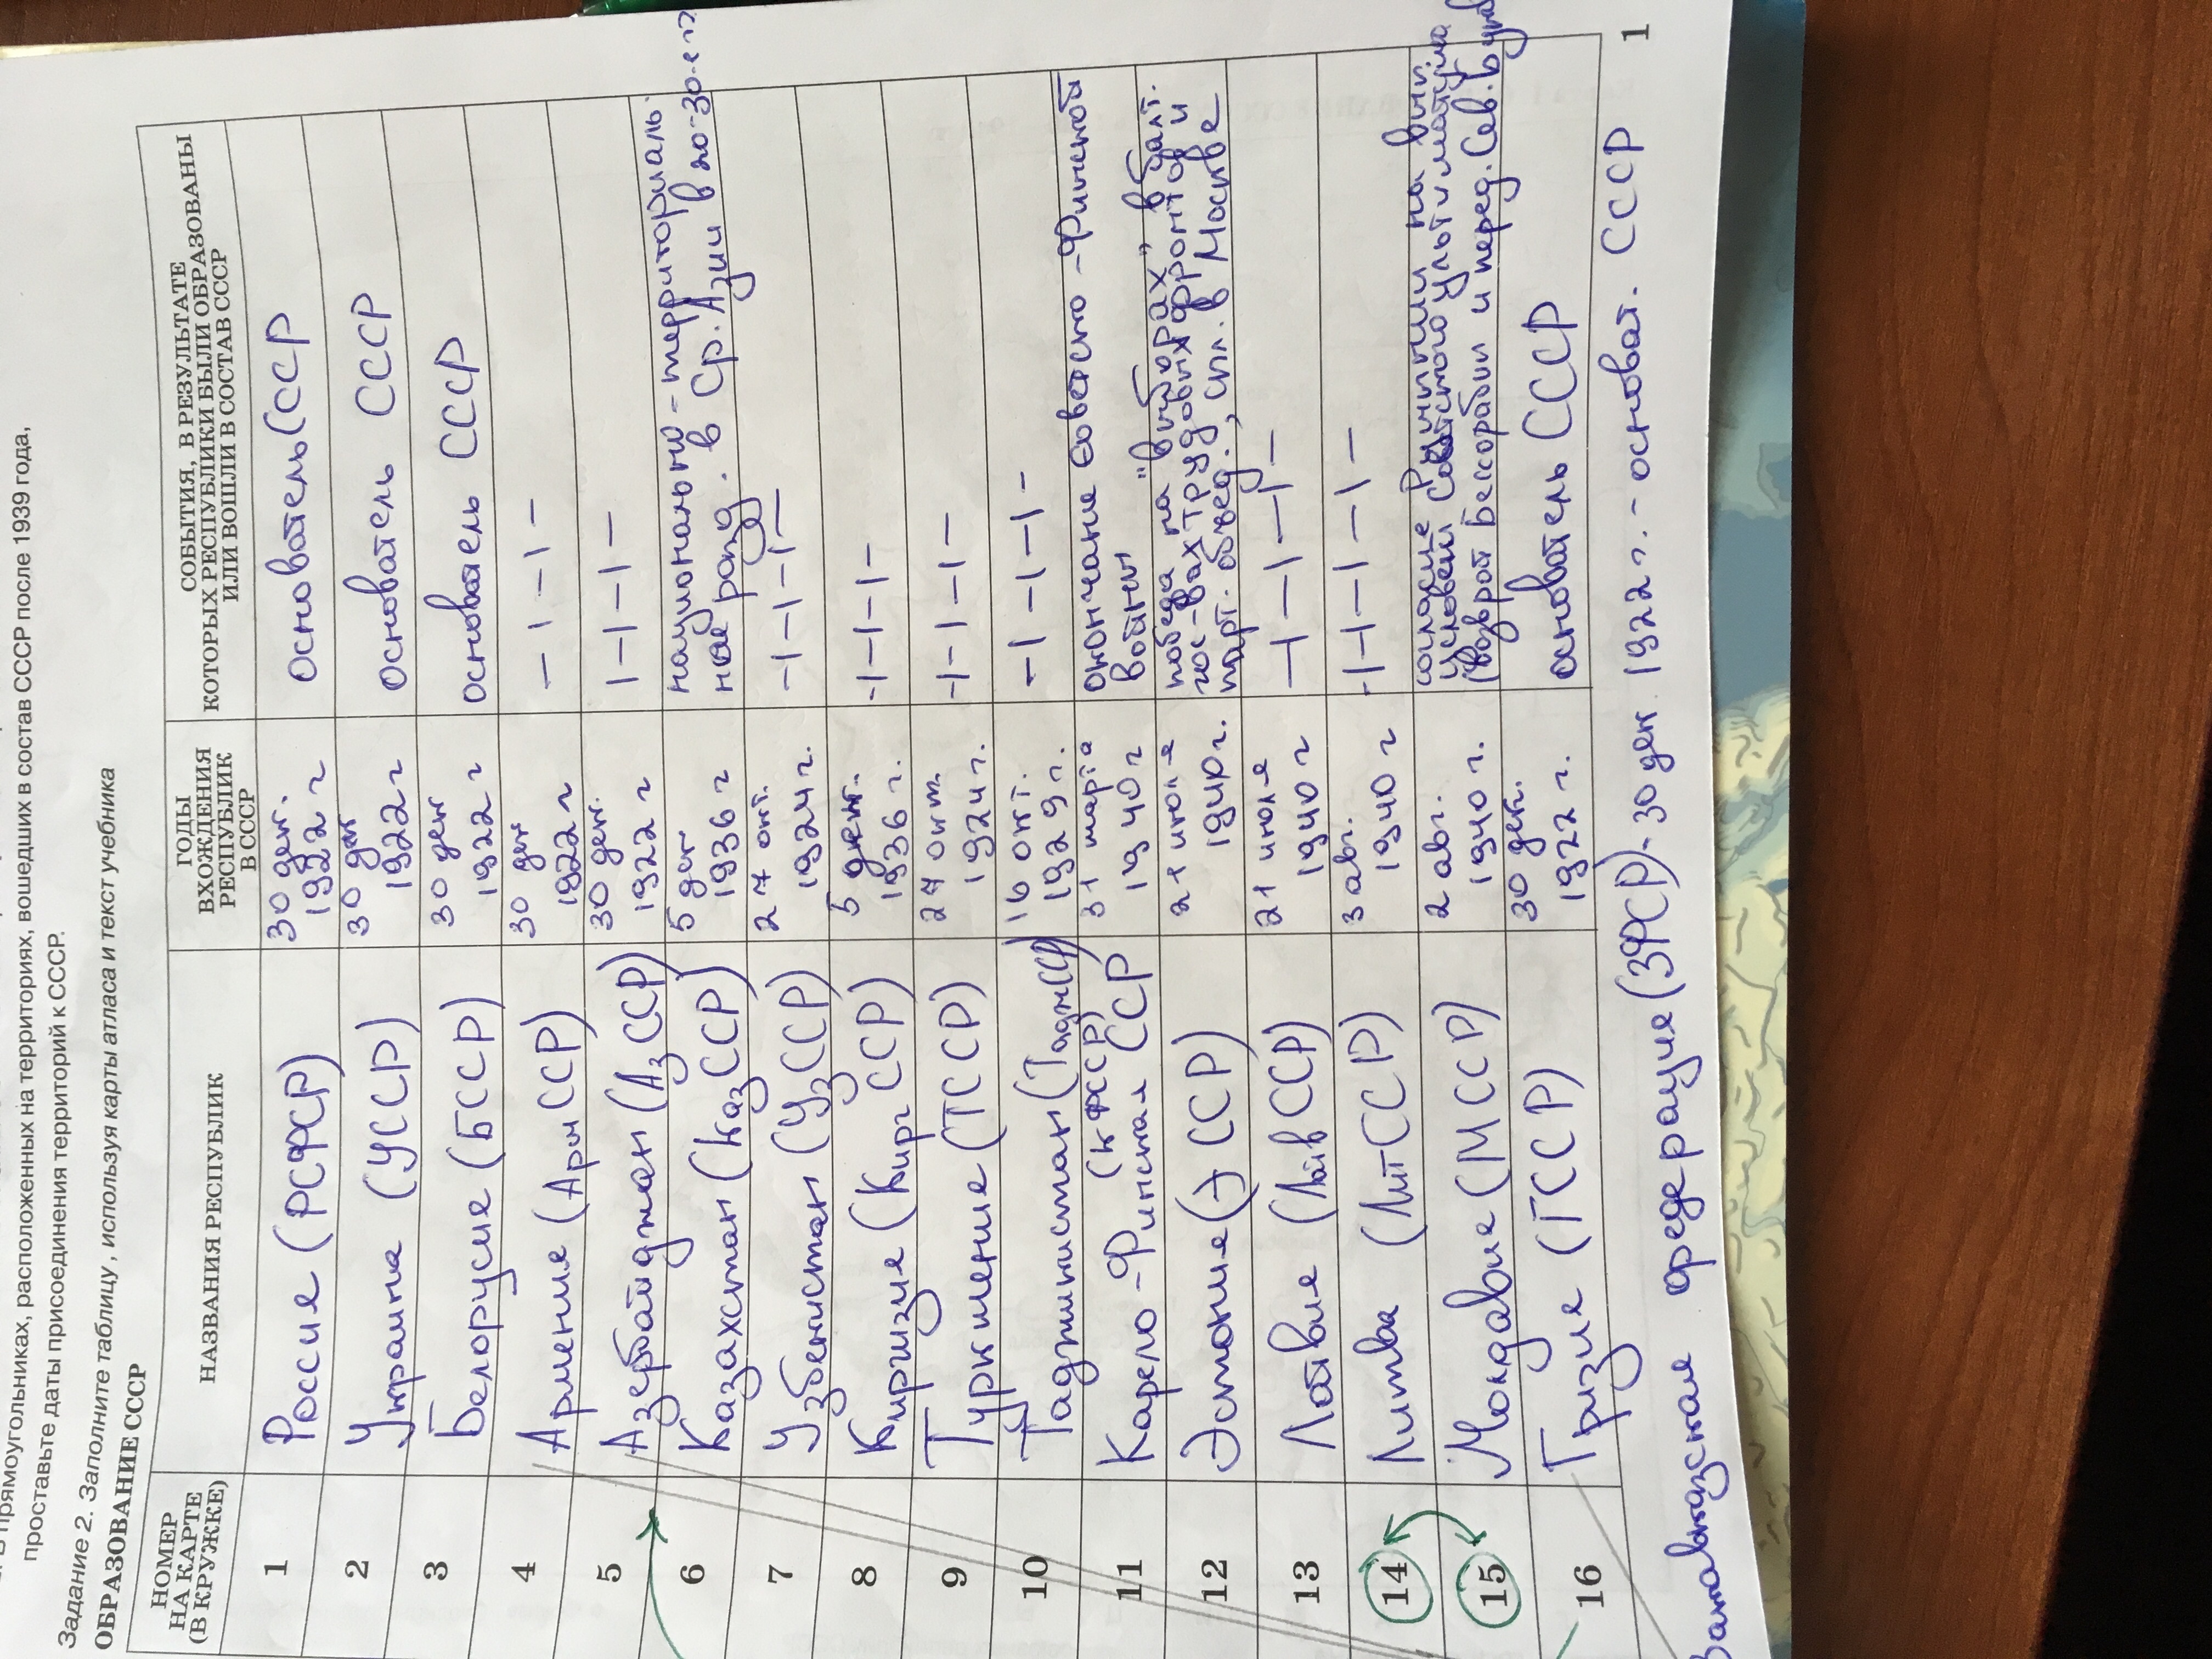 в прямоугольниках, расположенных на территориях, вошедших в состав СССР после 1939 года,
проставьте даты присоединения территорий к СССР.
Задание 2. Заполните таблицу, используя карты атласа и текст учебника
ОБРАЗОВАНИЕ СССР
НОМЕР НА КАРТЕ (В КРУЖКЕ)
НАЗВАНИЯ РЕСПУБЛИК
ГОДЫ ВХОЖДЕНИЯ РЕСПУБЛИК В СССР
СОБЫТИЯ, В РЕЗУЛЬТАТЕ КОТОРЫХ РЕСПУБЛИКИ БЫЛИ ОБРАЗОВАНЫ ИЛИ ВОШЛИ В СОСТАВ СССР
1 Россия (РСФСР) 30 дек. 1922 г основатель СССР
2 Украина (УССР) 30 дек 1922 г основатель СССР
3 Белорусия (БССР) 30 дек 1922 г основатель СССР
4 Армения (АрмССР) 30 дек 1922 г — I — I —
5 Азербайджан (АзССР) 30 дек. 1922 г I — I — I —
6 Казахстан (КазССР) 5 дек 1936 г национально-территориаль-
ное разд. в Ср. Азии в 20-30-е гг
7 Узбекистан (УзССР) 27 окт. 1924 г. — I — I — I —
8 Киргизия (КиргССР) 5 дек. 1936 г. - I — I — I —
9 Туркмения (ТССР) 27 окт. 1924 г. - I — I — I —
10 Таджикистан (ТаджССР) 16 окт. 1929 г. — I — I — I —
11 Карело-Финская ССР (КФССР) 31 марта 1940 г окончание Советско-Финской
войны
12 Эстония (ЭССР) 21 июля 1940 г. победа на "выборах" в балт.
гос-вах трудовых фронтов и
парт. объед., спл. в Москве
13 Латвия (ЛатвССР) 21 июля 1940 г — I — I — I —
14 Литва (ЛитССР) 3 авг. 1940 г - I — I — I —
15 Молдавия (МССР) 2 авг. 1940 г. согласие Румынии на вып.
условий Советского ультиматума
(возврат Бессарабии и перед. Сев.
16 Грузия (ГССР) 30 дек. 1922 г. основатель СССР
Закавказская федерация (ЗФСР) - 30 дек 1922 г. - основат. СССР
1